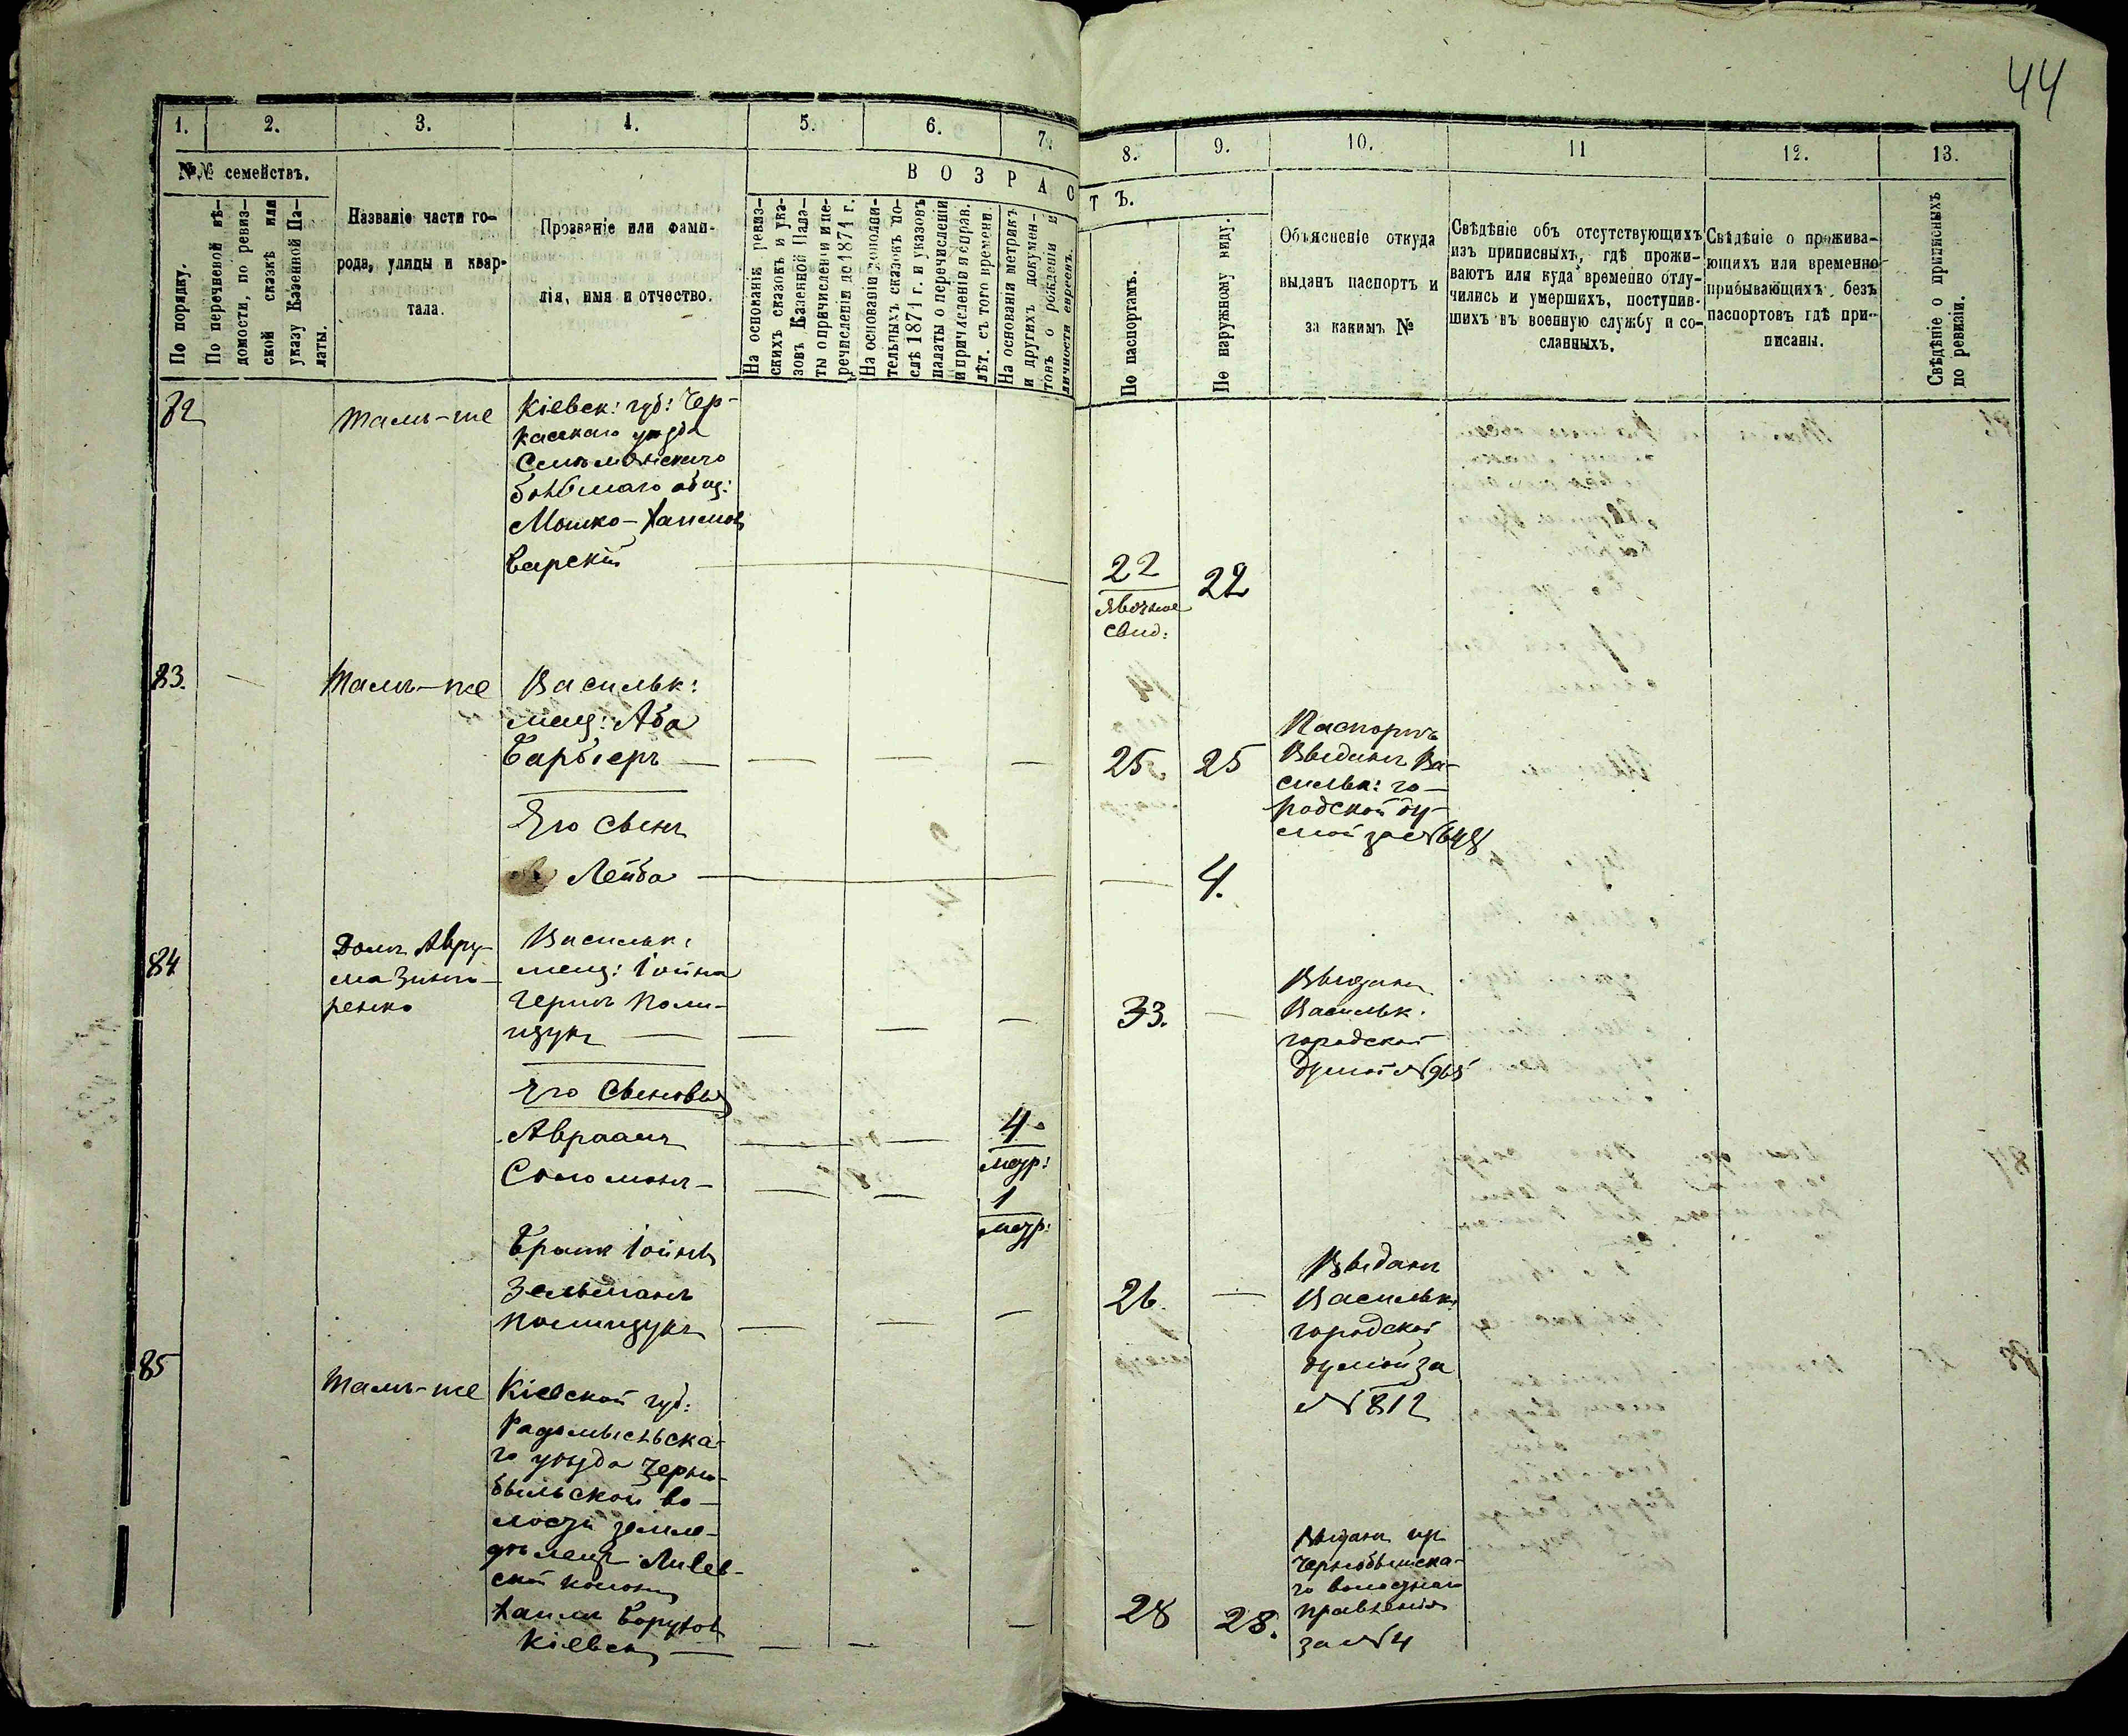 44
1. 2. 3. 4. 5. 6. 7. 8. 9. 10. 11 12. 13.
№№ семействъ.
По порядку.
По перечневой вѣ-
домости, по ревиз-
ской сказкѣ или
указу Казенной Па-
латы.
Названіе части го-
рода, улицы и квар-
тала.
Прозваніе или фами-
лія, имя и отчество.
ВОЗРАСТЪ.
На основаніи ревиз-
скихъ сказокъ и ука-
зовъ Казенной Пала-
ты о причисленіи и пе-
речисленіи до 1874 г.
На основаніи дополни-
тельныхъ сказокъ по-
слѣ 1874 г. и указовъ
палаты о перечисленіи
и причисленіи и справ.
лѣт. съ того времени.
На основаніи метрикъ
и другихъ докумен-
товъ о рожденіи и
личности евреевъ.
По паспортамъ.
По наружному виду.
Объясненіе откуда
выданъ паспортъ и
за какимъ №
Свѣдѣніе объ отсутствующихъ
изъ приписныхъ, гдѣ прожи-
ваютъ или куда временно отлу-
чились и умершихъ, поступив-
шихъ въ военную службу и со-
сланныхъ.
Свѣдѣніе о прожива-
ющихъ или временно
прибывающихъ безъ
паспортовъ гдѣ при-
писаны.
Свѣдѣніе о приписныхъ
по ревизіи.
82
Тамъ-же
Кіевск: губ: Чер-
касскаго уѣзда
общ:
Мошко-Хаимов
Барскій
22
Явочное
свид:
22
83.
Тамъ-же
Васильк:
мещ: Аба
Барбіеръ
25
25
Паспортъ
Выданъ Ва-
сильк: го-
родской ду-
мой за № 648
Его сынъ
Лейба
4.
84
Домъ Авру-
ма
Васильк:
мещ: Іойна
Герш Поли-
щукъ
33.
Выданъ
Васильк.
городской
думой № 965
Его сыновья
Авраамъ
4.
метр:
Соломонъ
1
метр:
Братъ Іойны
Зельманъ
Полищукъ
26
Выданъ
Васильк:
городской
думой за
№ 812
85
Тамъ-же
Кіевской губ:
Радомысльска-
го уѣзда Черно-
быльской во-
лости земле-
дѣлецъ
ской колоніи
Хаимъ Борухов
Кіевск
28
28.
Выданъ
Чернобыльска-
го волостнаго
правленія
за № 4